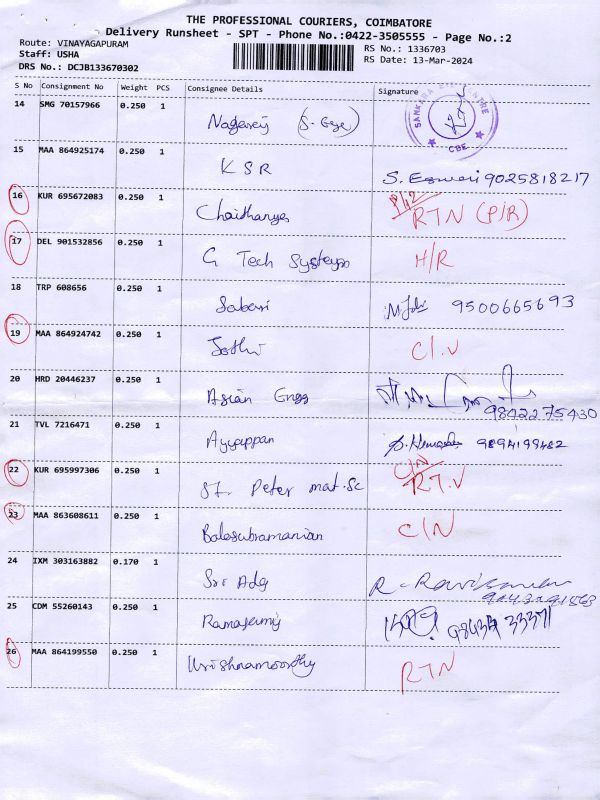 THE PROFESSIONAL COURIERS, COIMBATORE
Delivery Runsheet - SPT - Phone No.:0422-3505555 - Page No.:2
Route: VINAYAGAPURAM RS No.: 1336703
Staff: USHA RS Date: 13-Mar-2024
DRS No.: DCJB133670302
S No Consignment No Weight PCS Consignee Details Signature
14 SMG 70157966 0.250 1 Nagaraj (S-Eye) SANKARA EYE CENTRE CBE
15 MAA 864925174 0.250 1 KSR S. Eswari 9025818217
16 KUR 695672083 0.250 1 Chaithanya RTN (P/R)
17 DEL 901532856 0.250 1 G Tech Systems H/R
18 TRP 608656 0.250 1 Sabari 9500665693
19 MAA 864924742 0.250 1 Jothi C/.V
20 HRD 20446237 0.250 1 Asian Engg 9842275430
21 TVL 7216471 0.250 1 Ayyappan 9894199482
22 KUR 695997306 0.250 1 St. Peter mat.Sc C/N RT.V
23 MAA 863608611 0.250 1 Balasubramanian C/N
24 IXM 303163882 0.170 1 Sri Adg
25 CDM 55260143 0.250 1 Ramasamy
26 MAA 864199550 0.250 1 Krishnamoorthy RTN